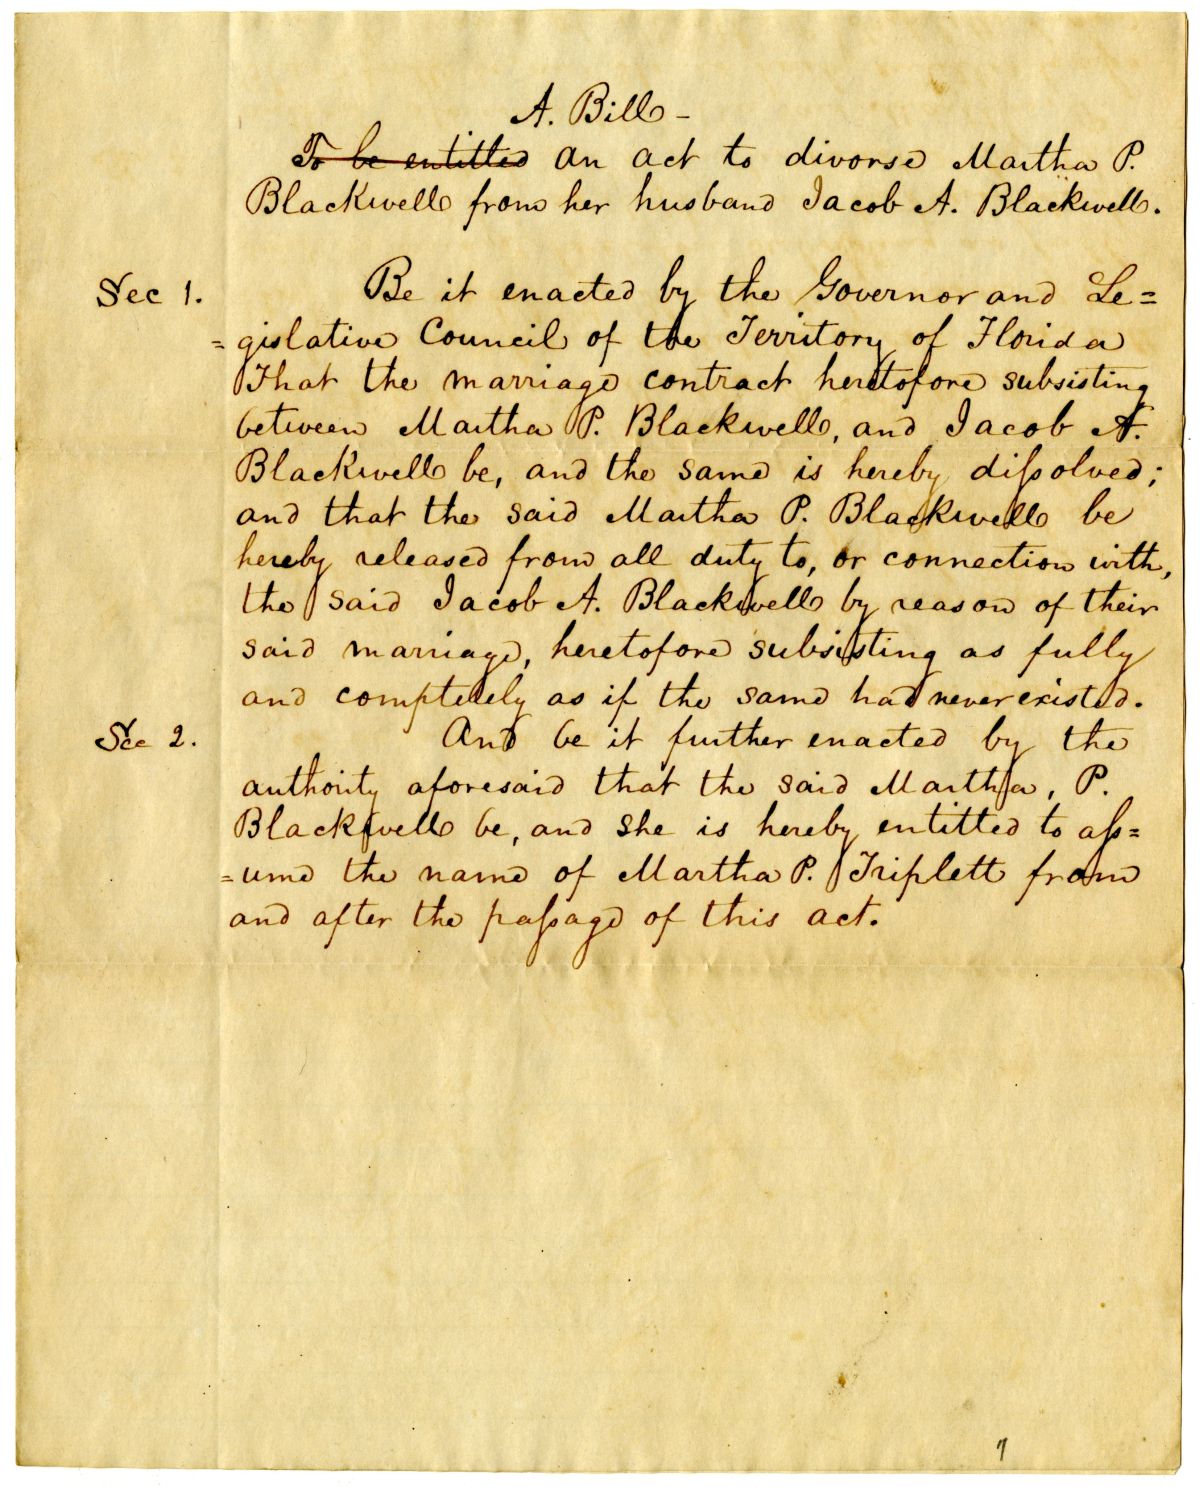 A. Bill -
~~To be entitled~~ an act to divorse Martha P.
Blackwell from her husband Jacob A. Blackwell.
Sec 1. Be it enacted by the Governor and Le=
=gislative Council of the Territory of Florida
That the marriage contract heretofore subsisting
between Martha P. Blackwell, and Jacob A.
Blackwell be, and the same is hereby diſsolved;
and that the said Martha P. Blackwell be
hereby released from all duty to, or connection with,
the said Jacob A. Blackwell by reason of their
said marriage, heretofore subsisting as fully
and completely as if the same had never existed.
Sec 2. And be it further enacted by the
authority aforesaid that the said Martha, P.
Blackwell be, and she is hereby entitled to aſs=
=ume the name of Martha P. Triplett from
and after the paſsage of this act.
7